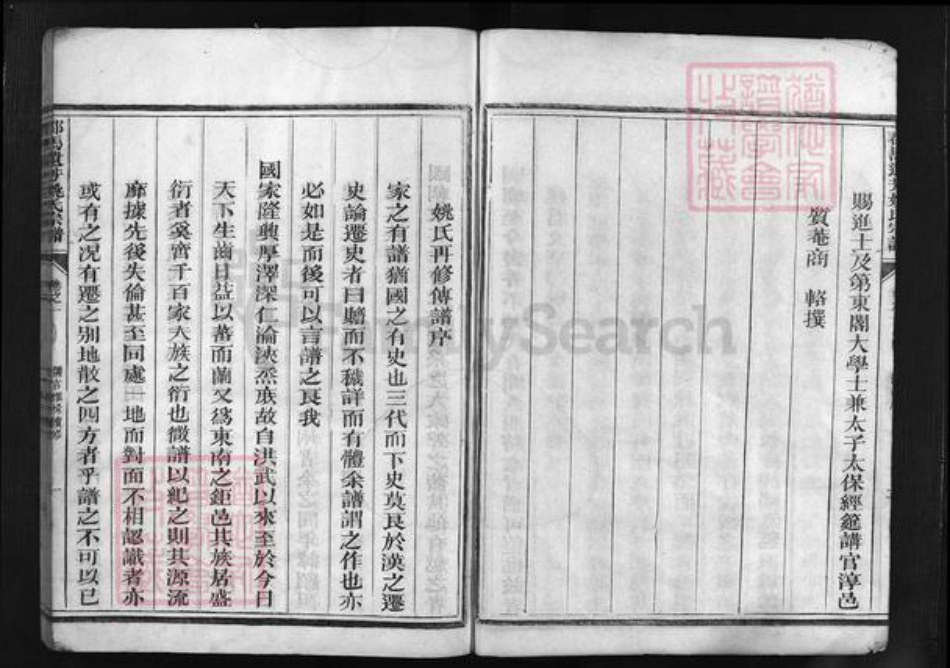 賜進士及第東閣大學士兼太子太保經筵講官淳邑
質菴商 輅撰
姚氏再修傳譜序
家之有譜猶國之有史也三代而下史莫良於漢之遷
史論遷史者曰贍而不穢詳而有體余譜謂之作也亦
必如是而後可以言譜之良我
國家隆興厚澤深仁淪浹烝哉故自洪武以來至於今日
天下生齒日益以蕃而蘭又為東南之鉅邑其族居盛
衍者奚啻千百家大族之衍也微譜以紀之則其源流
靡據先後失倫甚至同處一地而對面不相認識者亦
或有之況有遷之别地散之四方者乎譜之不可以已
姚氏宗譜
卷之一
FamilySearch